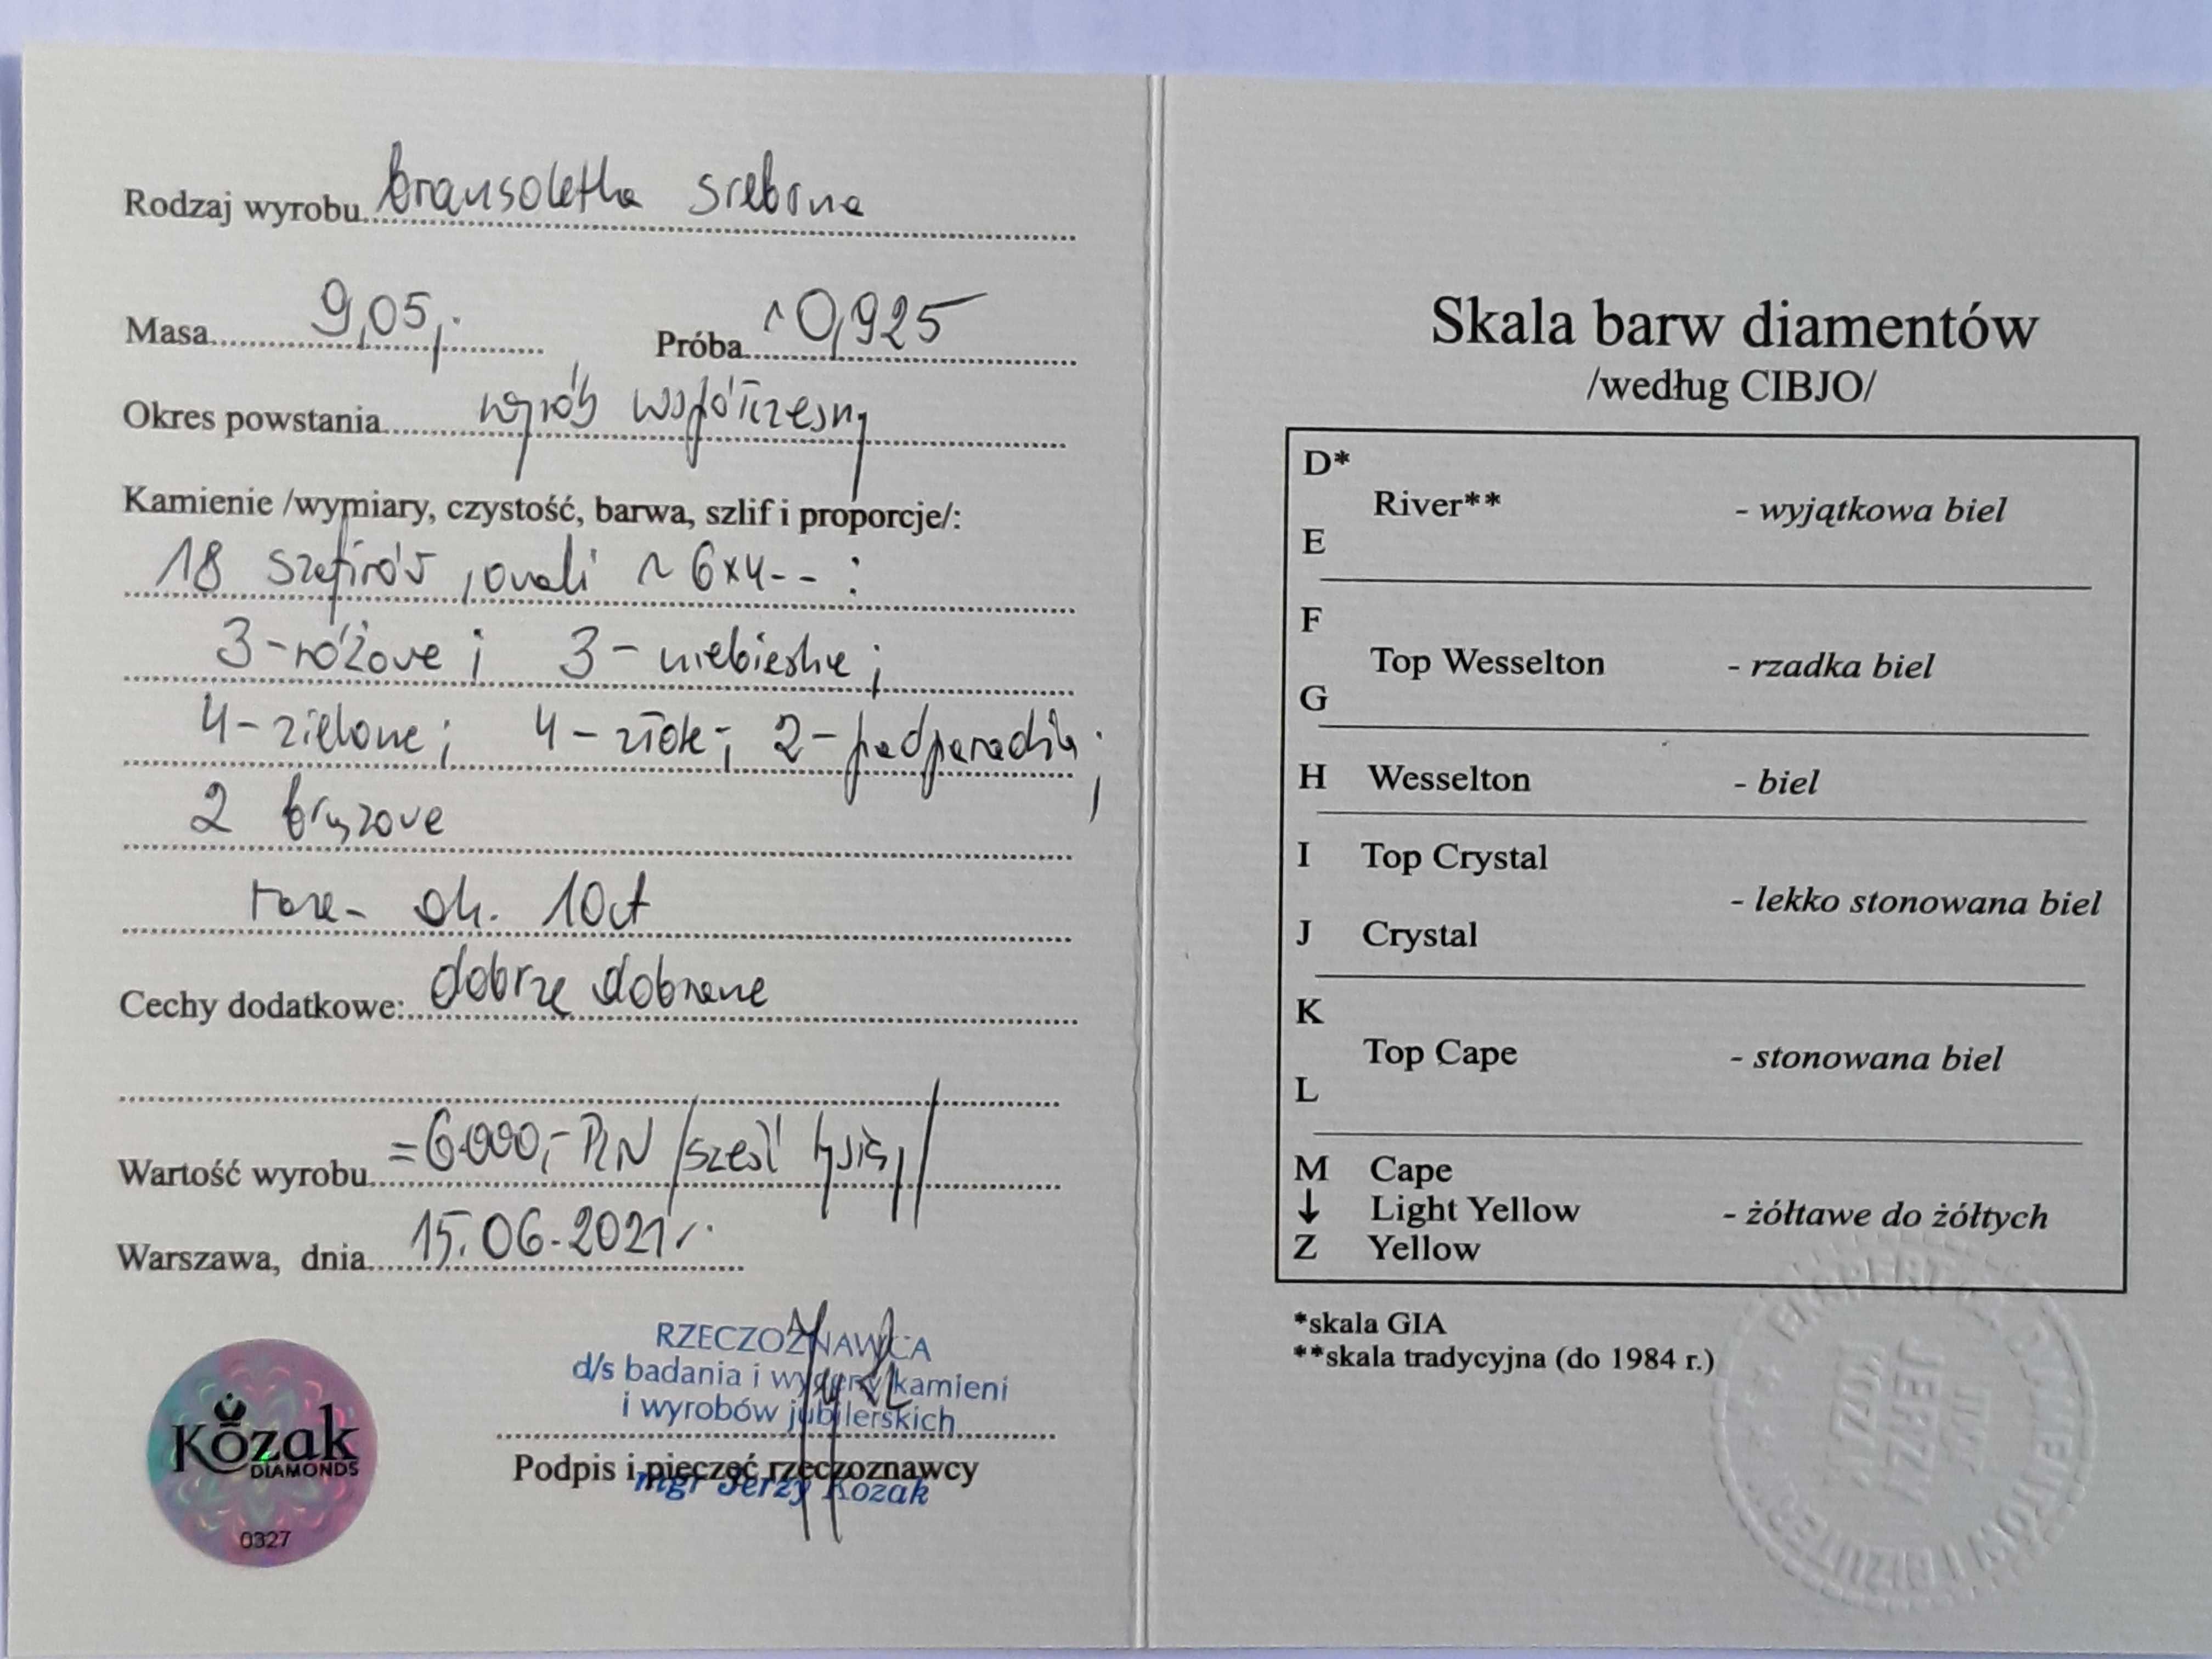 Rodzaj wyrobu bransoletka srebrna
Masa 9,05,. Próba ~0,925
Okres powstania wyrób współczesny
Kamienie /wymiary, czystość, barwa, szlif i proporcje/:
18 szafirów, owali ~ 6x4-- :
3-różowe; 3-niebieskie;
4-zielone; 4-złote; 2-padparadża;
2 brązowe
razem ok. 10ct
Cechy dodatkowe: dobrze dobrane
Wartość wyrobu =6.000,- PLN /sześć tysięcy/
Warszawa, dnia 15.06.2021r.
RZECZOZNAWCA
d/s badania i wyceny kamieni
i wyrobów jubilerskich
Podpis i pieczęć rzeczoznawcy
mgr Jerzy Kozak
Kozak
DIAMONDS
0327
Skala barw diamentów
/według CIBJO/
D*
River** - wyjątkowa biel
E
F
Top Wesselton - rzadka biel
G
H Wesselton - biel
I Top Crystal
- lekko stonowana biel
J Crystal
K
Top Cape - stonowana biel
L
M Cape
↓ Light Yellow - żółtawe do żółtych
Z Yellow
*skala GIA
**skala tradycyjna (do 1984 r.)
JERZY
KOZAK